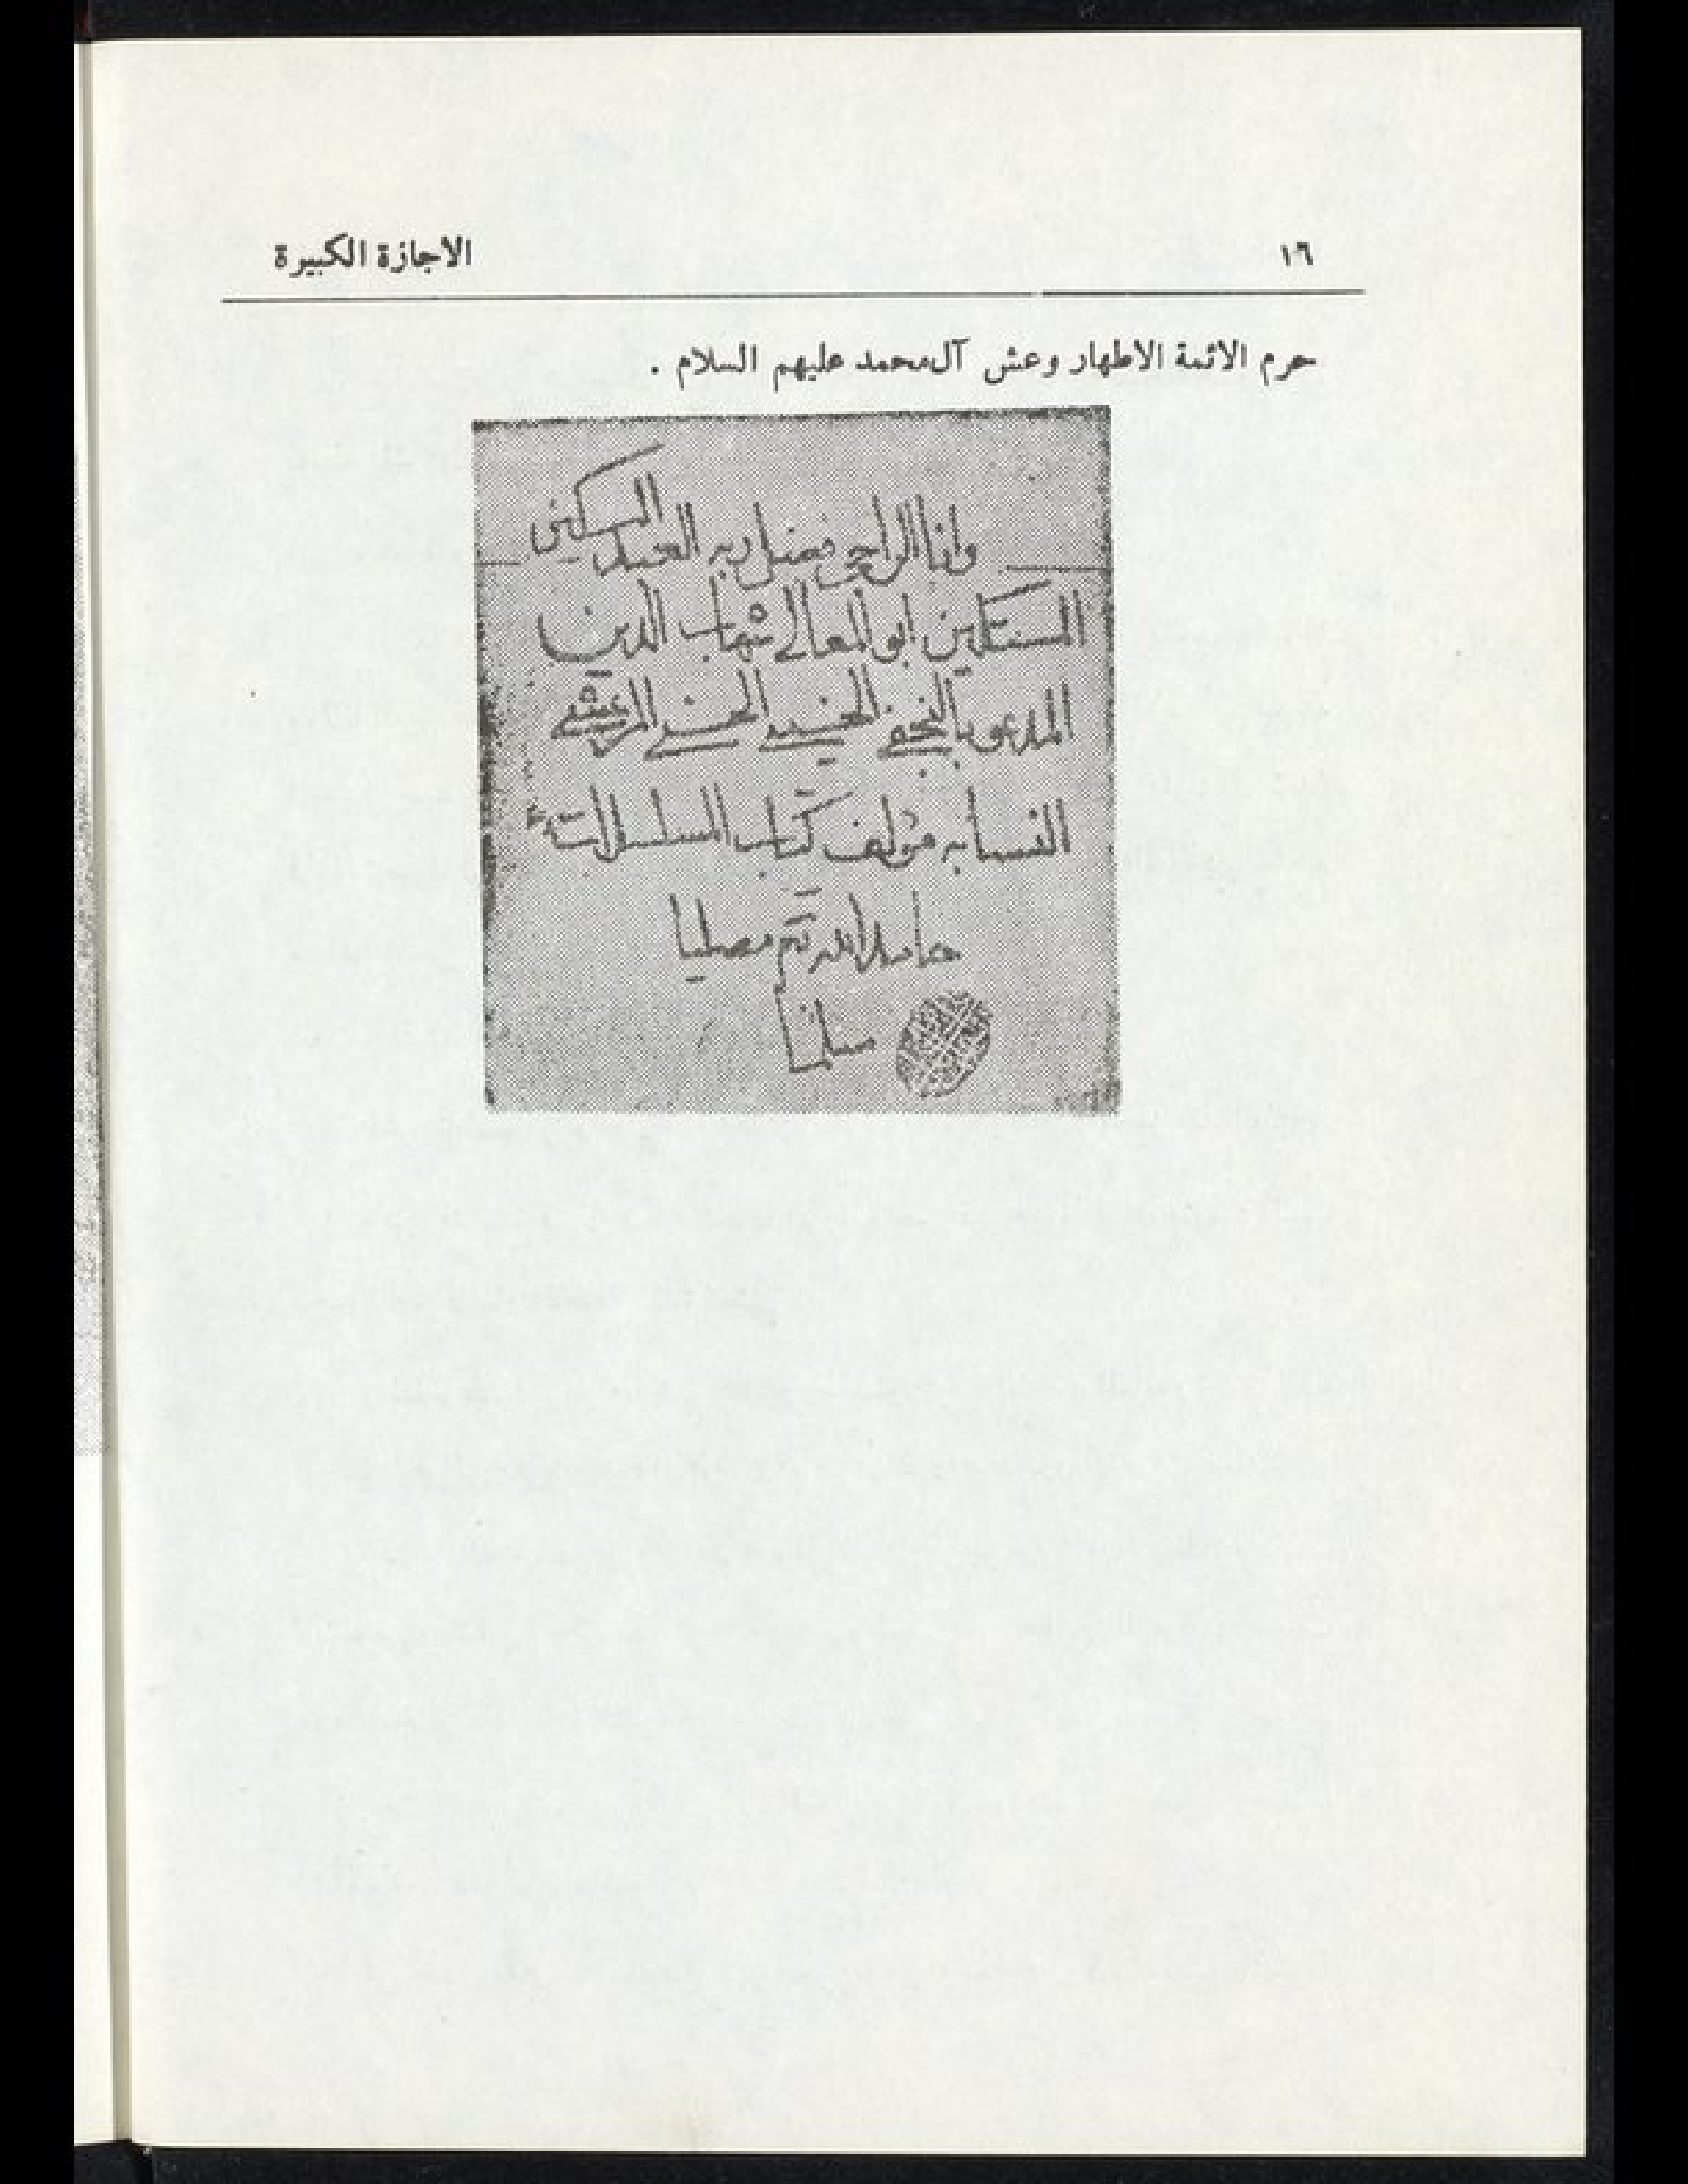 ١٦
الاجازة الكبيرة
حرم الائمة الاطهار وعش آل‌محمد عليهم السلام .
وانا الراجى فضل ربه العبد المسكين
المستكين ابو المعالى شهاب الدين
المدعو بالنجفى الحسينى الحسنى المرعشى
النسابه مؤلف كتاب المسلسلات
حامدا لله تع مصليا
مسلما